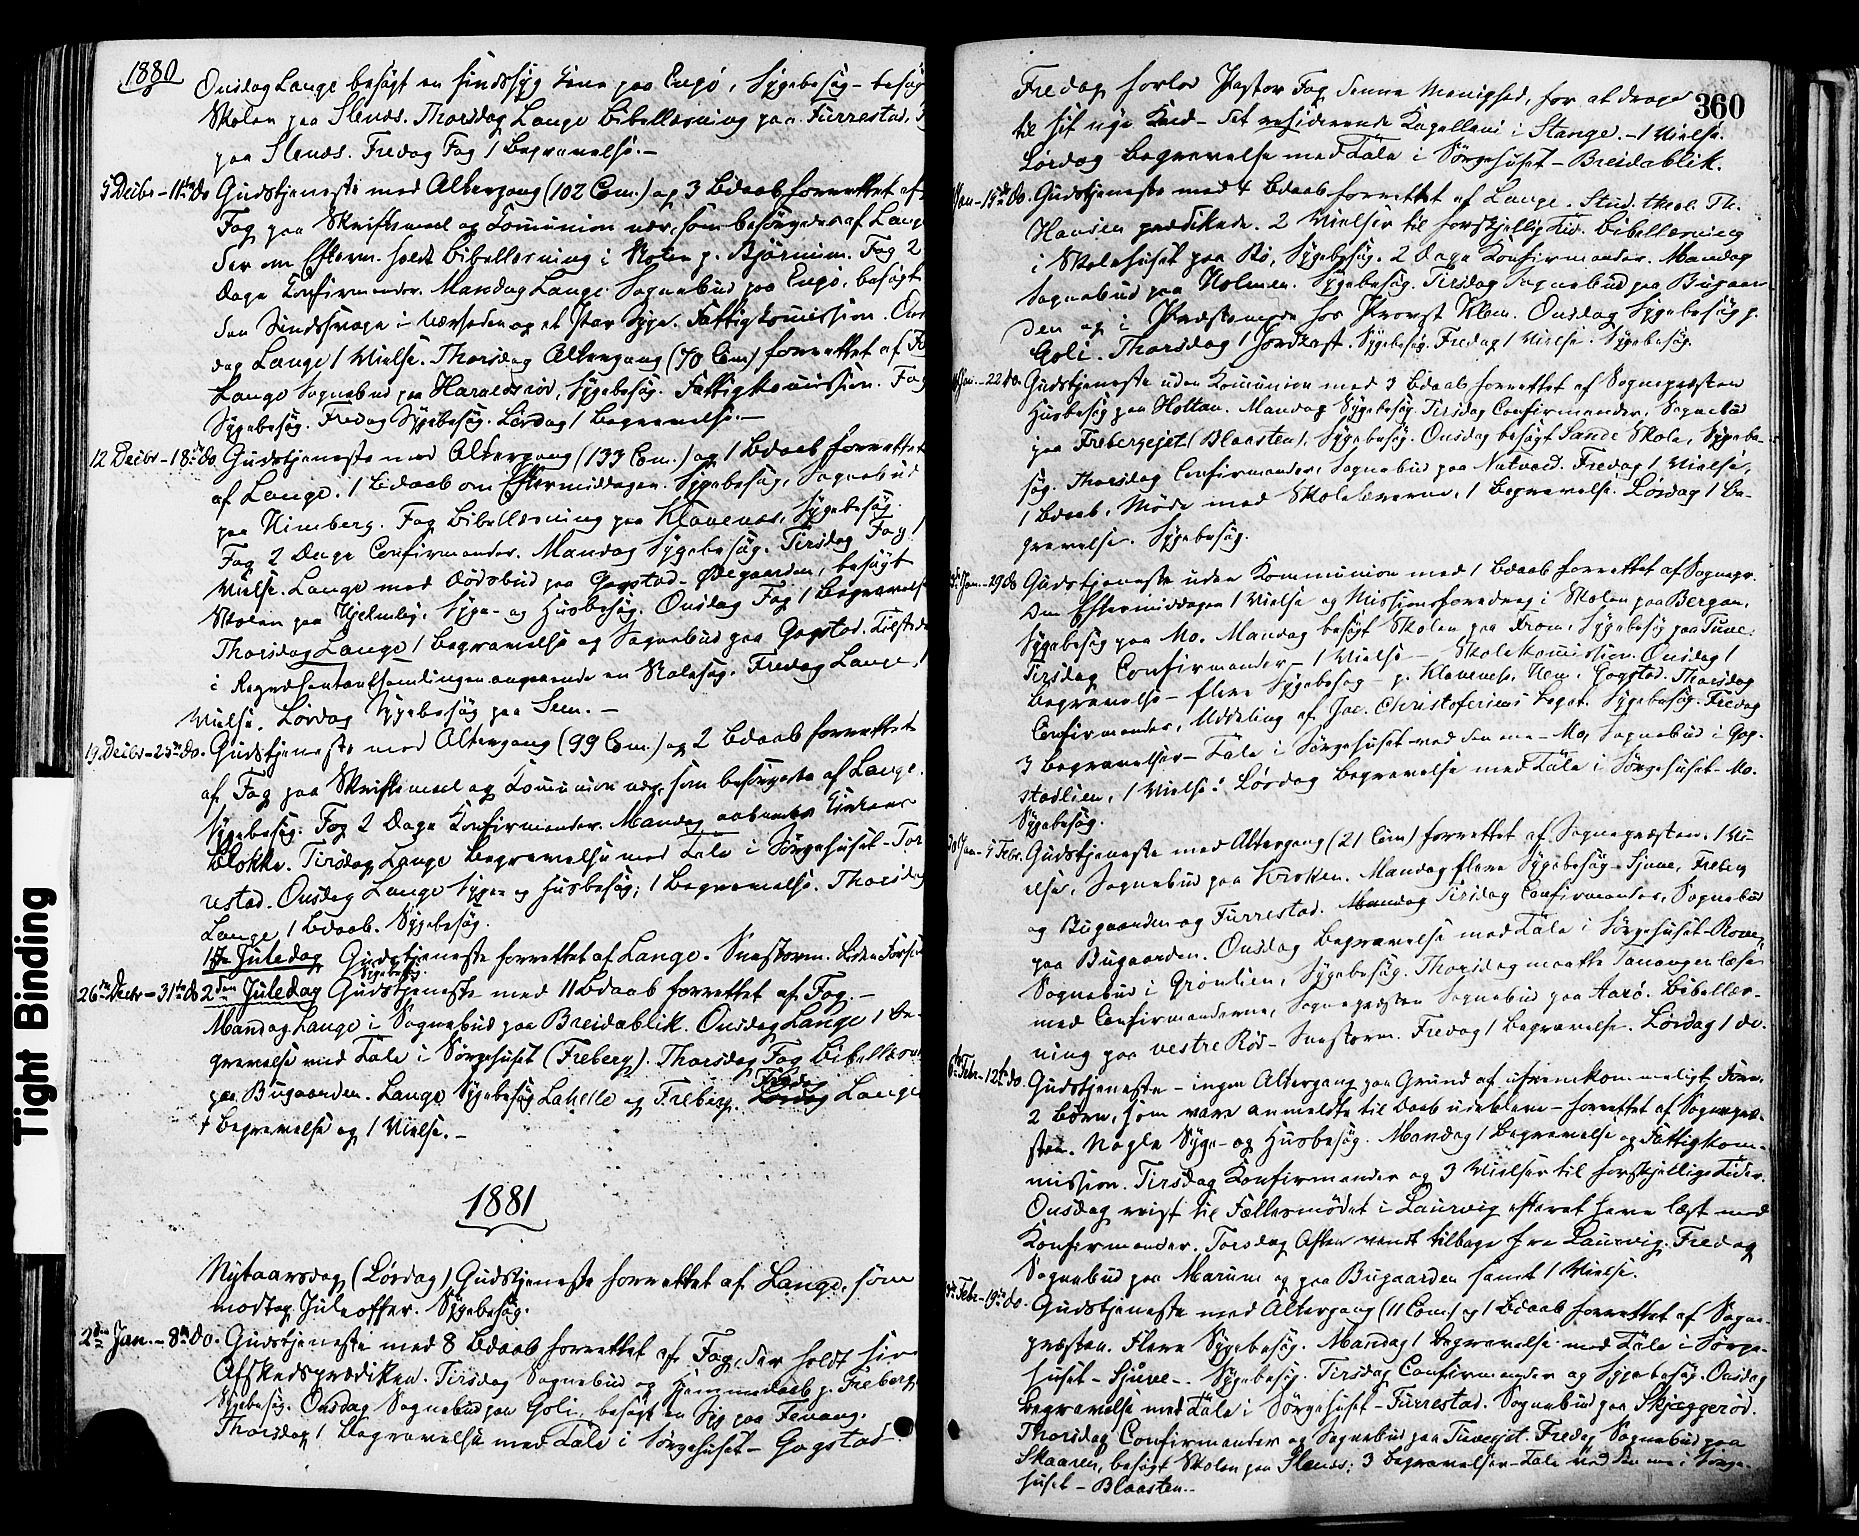 1880
Onsdag Lange besøgt en sindssyg Kone paa Engø, Sygebesøg - besøgt
Skolen paa Slenes. Thorsdag Lange Bibellæsning paa Furrestad,
paa Slenes. Fredag Fog 1 Begravelse. -
5 Decbr - 11te do Gudstjeneste med Altergang (102 Com.) og 3 Bdaab forrettet af
Fog paa Skriftemaal og Communion nær, som besørgedes af Lange
der om Efterm. holdt Bibellæsning i Skolen p. Bjørnum. Fog 2
Dage Confirmander. Mandag Lange Sognebud paa Engø, besøgt
den Sindssvage i Nærheden og et Par Syge. Fattigkomission. Ons
dag Lange 1 Vielse. Thorsdag Altergang (70 Com) forrettet af
Lange Sognebud paa Haraldsrød, Sygebesøg. Fattigkomission. Fog
Sygebesøg. Fredag Sygebesøg. Lørdag 1 Begravelse. -
12 Decbr - 18de do Gudstjeneste med Altergang (133 Com.) og 1 Bdaab forrettet
af Lange. 1 Bdaab om Eftermiddagen. Sygebesøg, Sognebud
paa Nimberg. Fog Bibellæsning paa Klavenes, Sygebesøg.
Fog 2 Dage Confirmander. Mandag Sygebesøg. Tirsdag Fog 1
Vielse. Lange med Dødsbud paa Gogstad-Ødegaarden, besøgt
Skolen paa Hjelmby, Syge- og Husbesøg. Onsdag Fog 1 Begravelse
Thorsdag Lange 1 Begravelse og Sognebud paa Gogstad. Tilstede
i Repræsentantsamlingen angaaende en Skolesag. Fredag Lange 1
Vielse. Lørdag Sygebesøg paa Sem. -
19 Decbr - 25de do. Gudstjeneste med Altergang (99 Com.) og 2 Bdaab forrettet
af Fog paa Skriftemaal og Communion nær, som besørgedes af Lange.
Sygebesøg. Fog 2 Dage Konfirmander. Mandag aabnedes Kirkens
Blokke. Tirsdag Lange Begravelse med Tale i Sørgehuset - Fur
restad. Onsdag Lange Syge- og Husbesøg; 1 Begravelse. Thorsdag
Lange 1 Bdaab. Sygebesøg.
1ste Juledag Gudstjeneste forrettet af Lange. Snestorm.
Sygebesøg.
26de Decbr - 31te do 2den Juledag Gudstjeneste med 11 Bdaab forrettet af Fog. -
Mandag Lange i Sognebud paa Breidablik. Onsdag Lange 1 Be-
gravelse med Tale i Sørgehuset (Freberg). Thorsdag Fog Bibellæsn
paa Bugaarden. Lange Sygebesøg Lahelle og Freberg. Fredag Lange
1 Begravelse og 1 Vielse. -
1881
Nytaarsdag (Lørdag) Gudstjeneste forrettet af Lange, som
modtog Juleoffer. Sygebesøg.
2den Jan. - 8de do. Gudstjeneste med 8 Bdaab forrettet af Fog, der holdt sin
Afskedsprædiken. Tirsdag Sognebud og Hjemmedaab p. Freberg
Sygebesøg. Onsdag Sognebud paa Goli, besøgt en Syg paa Fevang.
Thorsdag 1 Begravelse med Tale i Sørgehuset - Gogstad.
360
Fredag forlod Pastor Fog denne Menighed, for at drage
til sit nye Kald - det residerende Kapellani i Stange. - 1 Vielse.
Lørdag Begravelse med Tale i Sørgehuset - Breidablik.
Jan - 15de do. Gudstjeneste med 4 Bdaab forrettet af Lange. Stud. theol. Th.
Hansen prædikede. 2 Vielser til forskjellig Tid. Bibellæsning
i Skolehuset paa Bø, Sygebesøg. 2 Dage Konfirmander. Mandag
Sognebud paa Holmen. Sygebesøg. Tirsdag Sognebud paa Bugaar
den og i Præstemøde hos Provst Klem. Onsdag Sygebesøg p.
Goli. Thorsdag 1 Jordkast. Sygebesøg. Fredag 1 Vielse. Sygebesøg.
Jan. - 22 do. Gudstjeneste uden Komunion med 3 Bdaab forrettet af Sognepræsten
Husbesøg paa Hottan. Mandag Sygebesøg. Tirsdag Confirmander, Sognebud
paa Frebergejet (Blaasten), Sygebesøg. Onsdag besøgt Sande Skole, Sygebe-
søg. Thorsdag Confirmander, Sognebud paa Natvad. Fredag 1 Vielse,
1 Bdaab, Møde med Skolelærerne, 1 Begravelse. Lørdag 1 Be-
gravelse. Sygebesøg.
Jan. - 29 do Gudstjeneste uden Kommunion med 1 Bdaab forrettet af Sognepr.
Om Eftermiddagen 1 Vielse og Missionsforedrag i Skolen paa Bergan,
Sygebesøg paa Mo. Mandag besøgt Skolen paa From, Sygebesøg paa Tuve.
Tirsdag Confirmander - 1 Vielse - Skolekomission. Onsdag 1
Begravelse - flere Sygebesøg - p. Klavenes, Nem, Gogstad. Thorsdag
Confirmander, Uddeling af Jac. Christofersens Legat. Sygebesøg. Fredag
3 Begravelser - Tale i Sørgehuset ved den ene - Mo, Sognebud i Gog-
stadlien, 1 Vielse. Lørdag Begravelse med Tale i Sørgehuset - Mo.
Sygebesøg.
30 Jan - 5 Febr. Gudstjeneste med Altergang (21 Com) forrettet af Sognepræsten. 1 Vi-
else, Sognebud paa Krokken. Mandag flere Sygebesøg - Sjuve, Freberg
og Bugaarden og Furrestad. Tirsdag Confirmander, Sognebud
paa Bugaarden. Onsdag Begravelse med Tale i Sørgehuset - Rove,
Sognebud i Grønlien, Sygebesøg. Thorsdag maatte læse
med Confirmanderne, Sognepræsten Sognebud paa Aarø. Bibellæs-
ning paa vestre Rød - Snestorm. Fredag 1 Begravelse. Lørdag 1 do.
6te Febr. - 12te do. Gudstjeneste - ingen Altergang paa Grund af ufremkommeligt Føre.
2 Børn, som vare anmeldte til Daab udebleve - forrettet af Sognepræ-
sten. Nogle Syge- og Husbesøg. Mandag 1 Begravelse og Fattigkom-
mission. Tirsdag Konfirmander og 3 Vielser til forskjellige Tider.
Onsdag reist til Fællesmødet i Laurvig efterat have læst med
Konfirmander. Torsdag Aften vendt tilbage fra Laurvig. Fredag
Sognebud paa Marum og paa Bugaarden samt 1 Vielse.
Febr. - 19de do. Gudstjeneste med Altergang (11 Com.) og 1 Bdaab forrettet af Sogne-
præsten. Flere Sygebesøg. Mandag 1 Begravelse med Tale i Sørge-
huset - Sjuve - Sygebesøg. Tirsdag Confirmander og Sygebesøg. Onsdag
Begravelse med Tale i Sørgehuset - Furrestad. Sognebud paa Skjeggerød.
Thorsdag Confirmander og Sognebud paa Tuveejet. Fredag Sognebud paa
Skaaren, besøgt Skolen paa Slenes; 3 Begravelser - Tale ved den ene i Sørge-
huset - Blaasten. -
Tight Binding